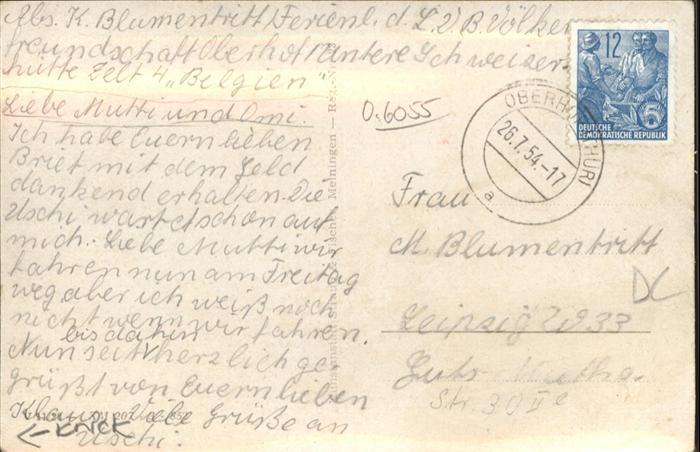 Abs. K. Blumentritt Ferienl. d. L.V.B. Völker
freundschaft Oberhof Untere Schweizer
hütte Zelt 4 „Belgien"
Liebe Mutti und Omi.
Ich habe Euern lieben
Brief mit dem Geld
dankend erhalten. Die
Uschi wartet schon auf
mich. Liebe Mutti wir
fahren nun am Freitag
weg aber ich weiß noch
nicht wenn wir fahren.
bis dahin
Nun seit herzlich ge-
grüßt von Euern lieben
Klaus. Viele Grüße an
Uschi.
← KNICK
0.6055
12
DEUTSCHE
DEMOKRATISCHE REPUBLIK
OBERHOF (THÜR)
26.7.54.-17
a
Frau
M. Blumentritt
DC
Leipzig W 33
Guts-Muths-
Str. 30 II e
Meiningen